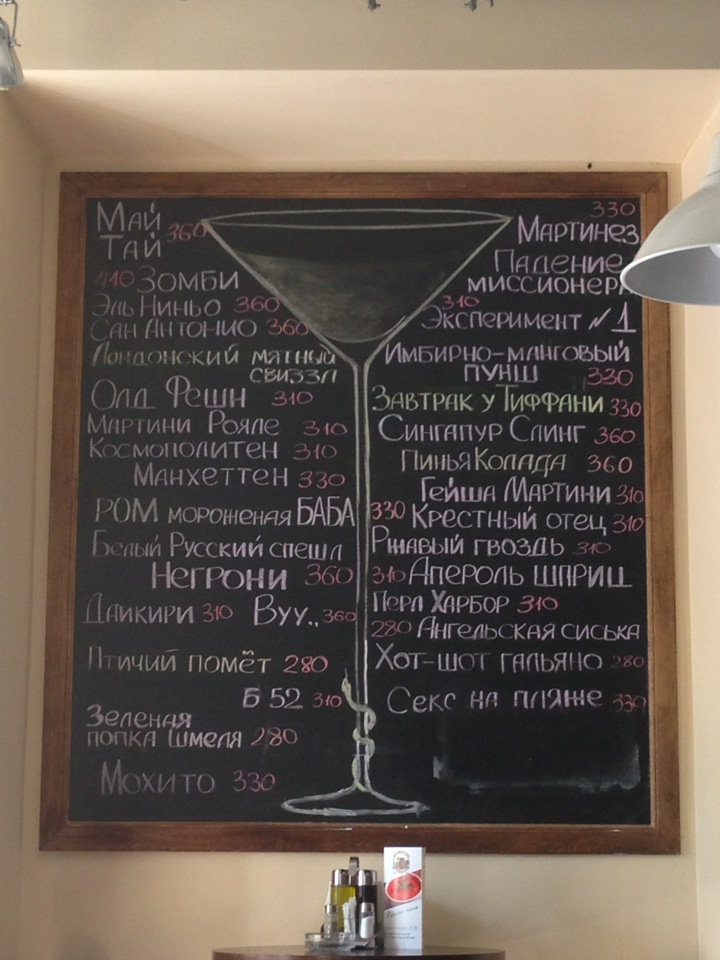 Май
Тай 360
410 Зомби
Эль Ниньо 360
Сан Антонио 360
Лондонский мятный
свиззл
Олд Фешн 310
Мартини Рояле 310
Космополитен 310
Манхеттен 330
РОМ мороженая БАБА 330
Белый Русский спешл
Негрони 360
Дайкири 310 Вуу.. 360
Птичий помёт 280
Б 52 310
Зеленая
попка Шмеля 280
Мохито 330
330
Мартинез
Падение
миссионера
310
Эксперимент №1
Имбирно-манговый
пунш 330
Завтрак у Тиффани 330
Сингапур Слинг 360
Пинья Колада 360
Гейша Мартини 310
Крестный отец 310
Ржавый гвоздь 310
310 Апероль шприц
Перл Харбор 310
280 Ангельская сиська
Хот-шот гальяно 280
Секс на пляже 330